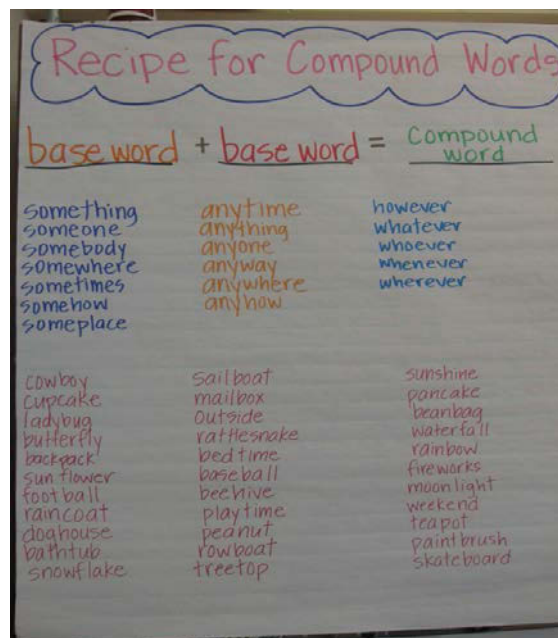 Recipe for Compound Words
base word + base word = compound word
something
someone
somebody
somewhere
sometimes
somehow
someplace
anytime
anything
anyone
anyway
anywhere
anyhow
however
whatever
whoever
whenever
wherever
cowboy
cupcake
ladybug
butterfly
backpack
sunflower
football
raincoat
doghouse
bathtub
snowflake
sailboat
mailbox
outside
rattlesnake
bedtime
baseball
beehive
playtime
peanut
rowboat
treetop
sunshine
pancake
beanbag
waterfall
rainbow
fireworks
moonlight
weekend
teapot
paintbrush
skateboard